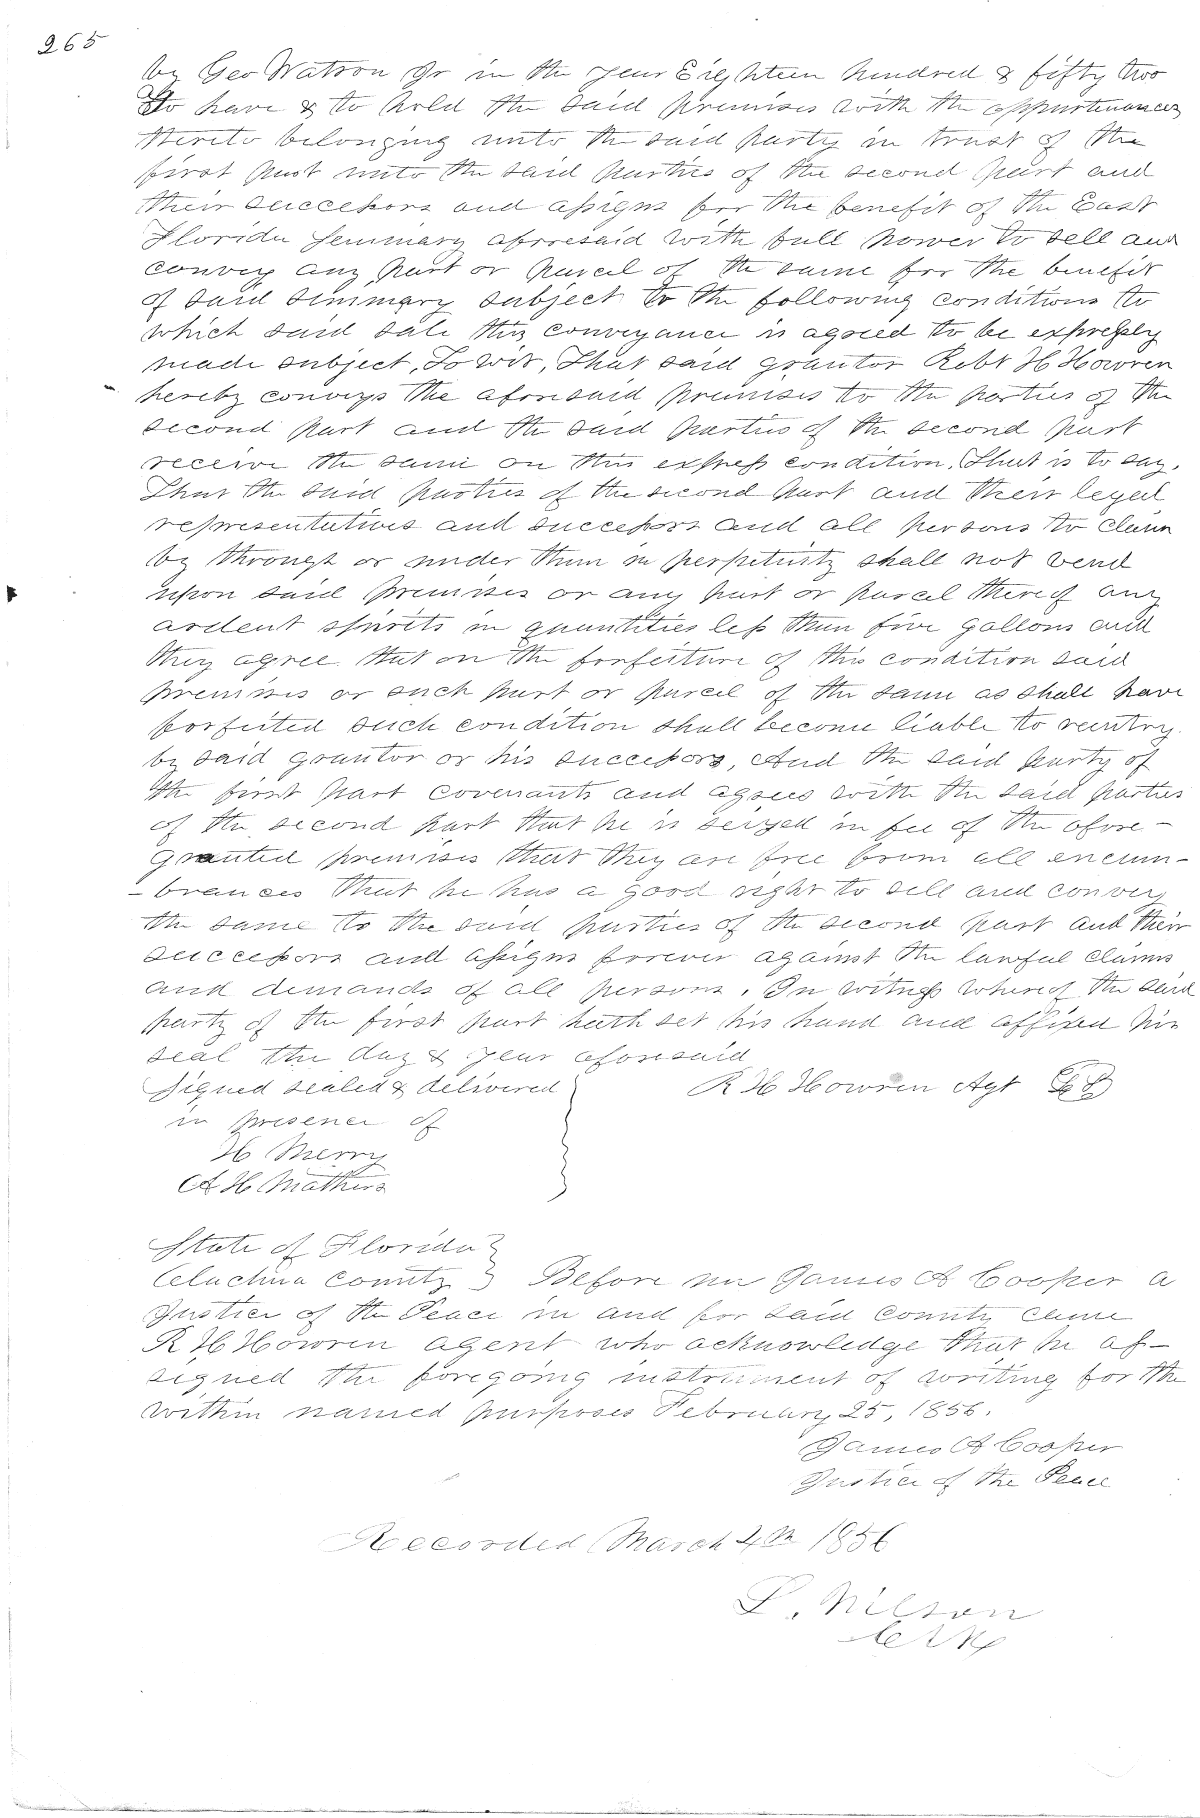 265
by Geo Watson Jr in the year Eighteen hundred & fifty two
To have & to hold the said premises with the appurtenances
thereto belonging unto the said party in trust of the
first part unto the said parties of the second part and
their successors and assigns for the benefit of the East
Florida Seminary aforesaid with full power to sell and
convey any part or parcel of the same for the benefit
of said Seminary subject to the following conditions to
which said sale this conveyance is agreed to be expressly
made subject, To wit, That said grantor Robt H Howren
hereby conveys the aforesaid premises to the parties of the
second part and the said parties of the second part
receive the same on this express condition. That is to say,
That the said parties of the second part and their legal
representatives and successors and all persons to claim
by through or under them in perpetuity shall not vend
upon said premises or any part or parcel thereof any
ardent spirits in quantities less than five gallons and
they agree that on the forfeiture of this condition said
premises or such part or parcel of the same as shall have
forfeited such condition shall become liable to reentry
by said grantor or his successors, And the said party of
the first part covenants and agrees with the said parties
of the second part that he is seized in fee of the afore-
granted premises that they are free from all encum-
-brances that he has a good right to sell and convey
the same to the said parties of the second part and their
successors and assigns forever against the lawful claims
and demands of all persons. In witness whereof the said
party of the first part hath set his hand and affixed his
seal the day & year aforesaid
Signed sealed & delivered R H Howren Agt
in presence of
H Merry
A H Mathers
State of Florida
Alachua County } Before me James A Cooper a
Justice of the Peace in and for said county came
R H Howren agent who acknowledge that he as-
signed the foregoing instrument of writing for the
within named purposes February 25, 1856.
James A Cooper
Justice of the Peace
Recorded March 4th 1856
L. Wilson
Clk